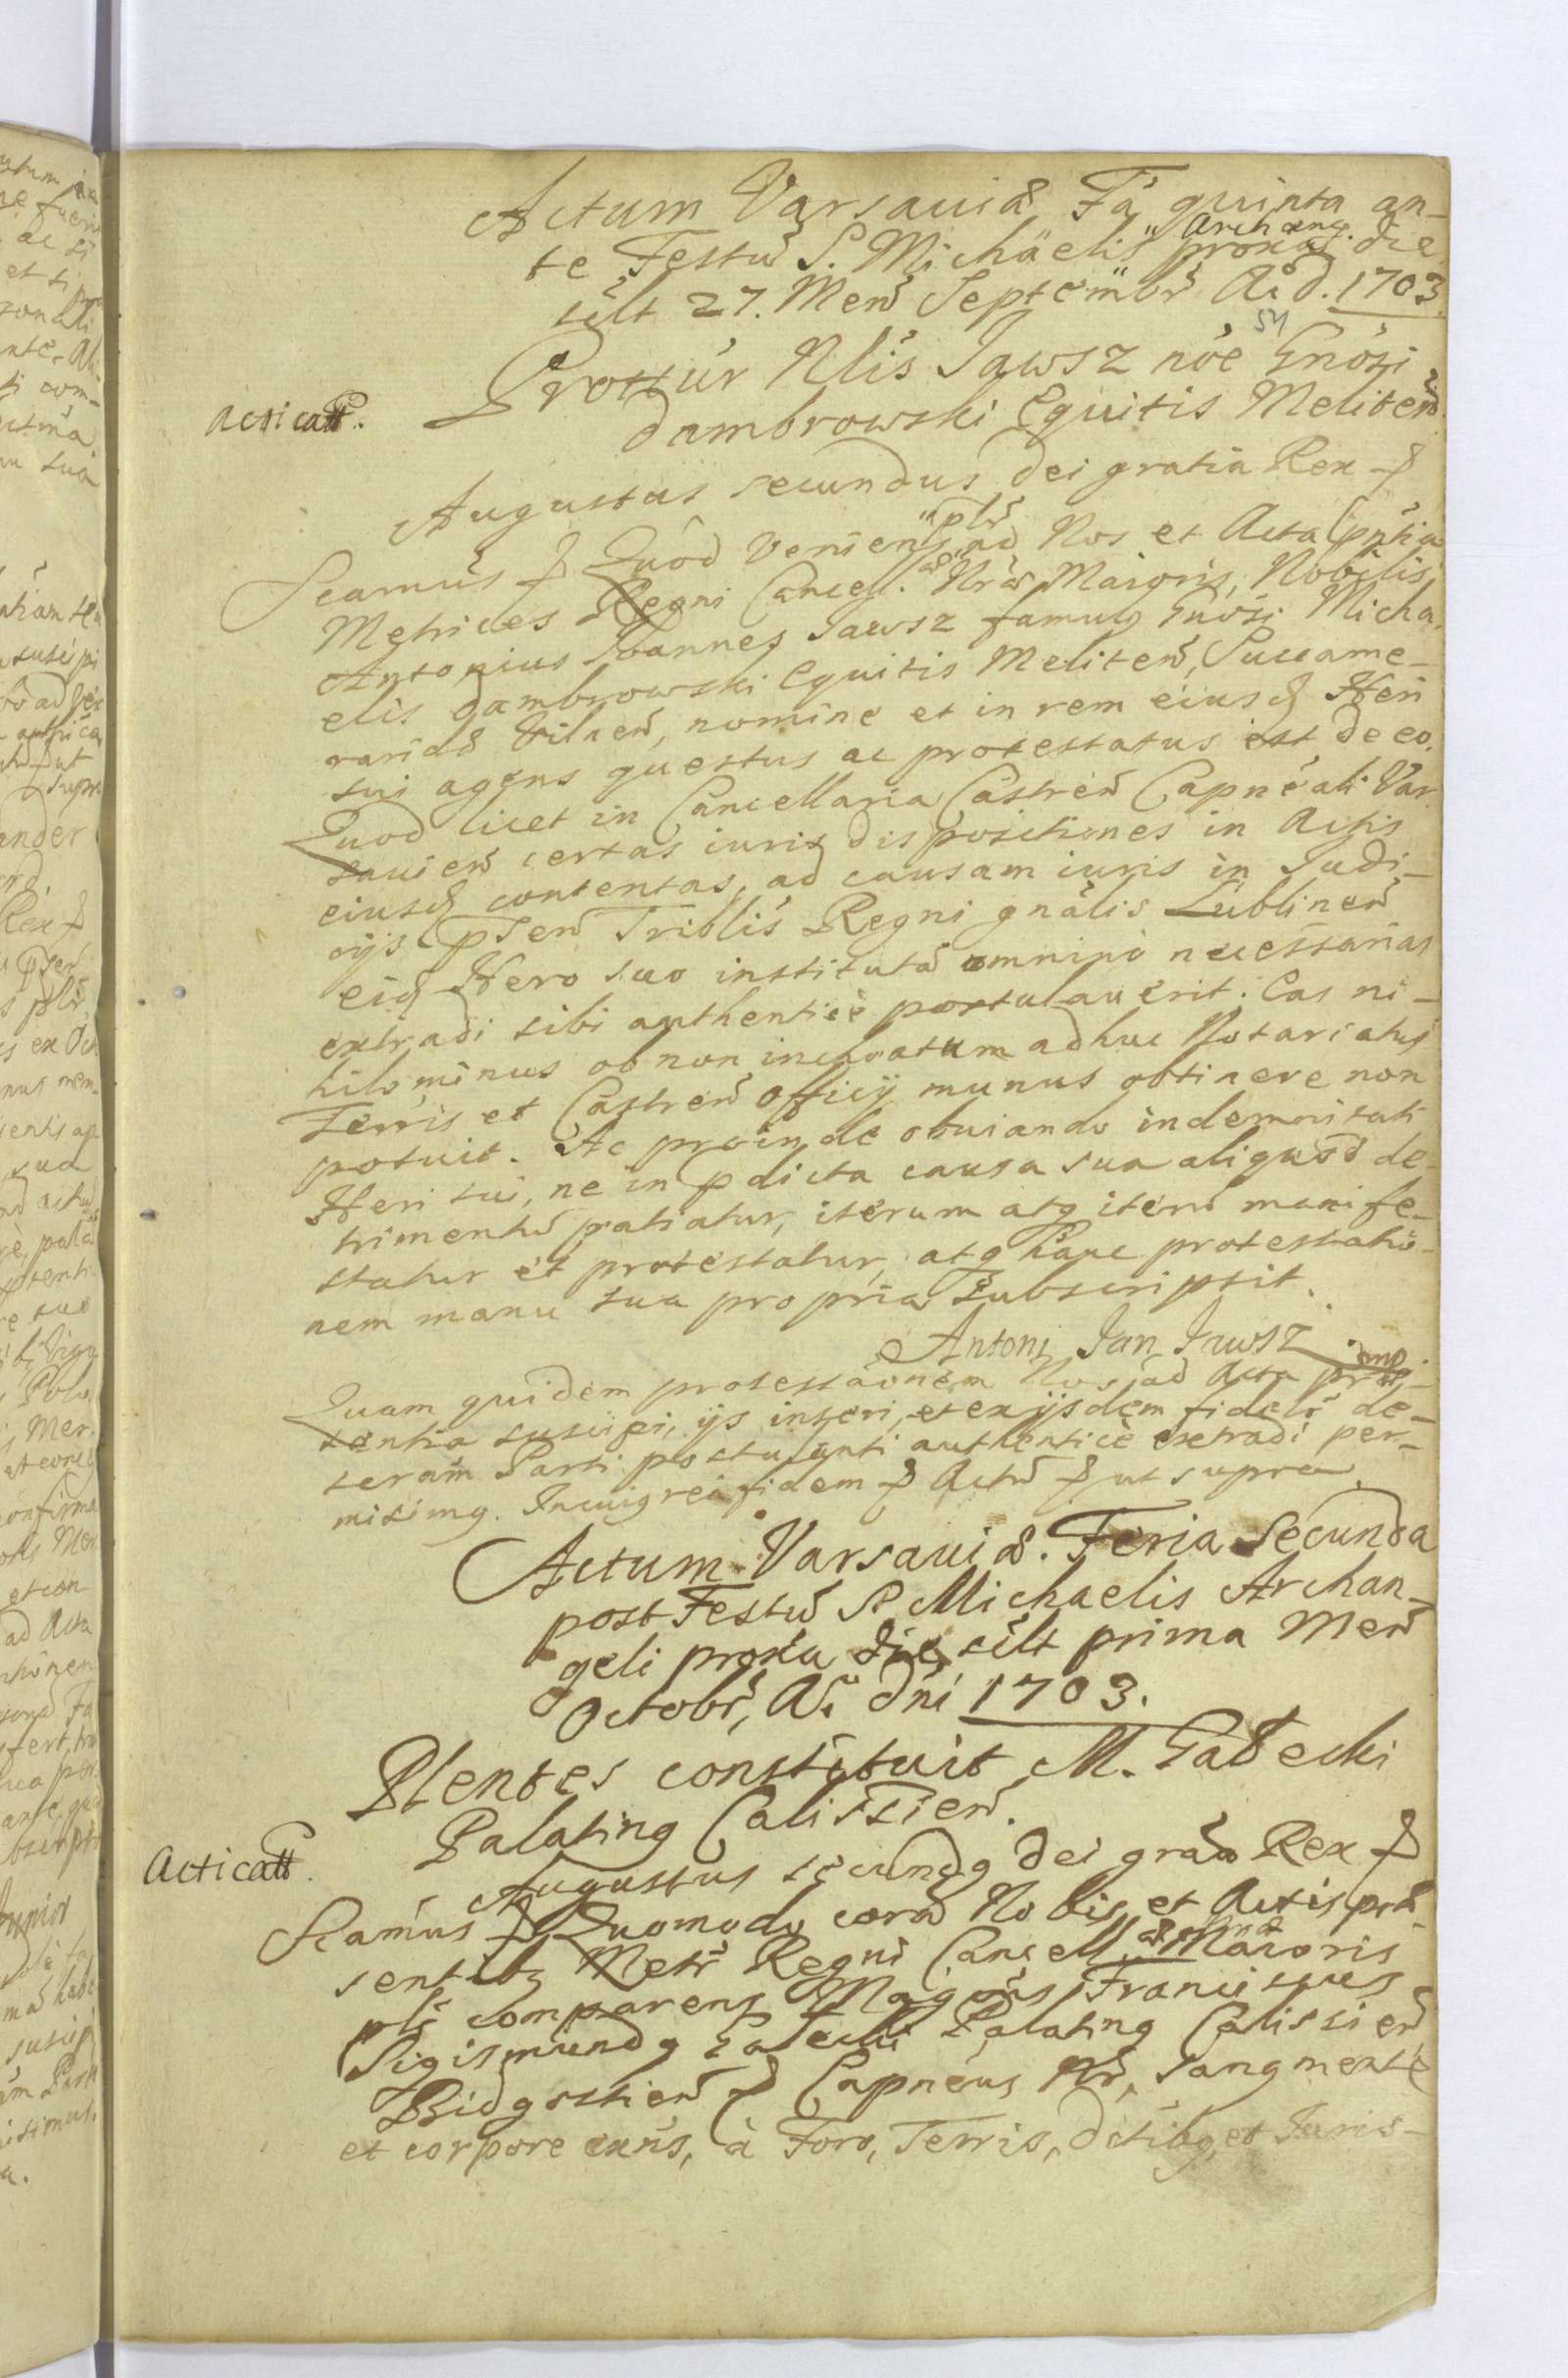 Actum Varsaviæ Fa quinta an-
te Festũ S. Michaelis Archang. proxa die
silt 27. Mens Septembr Ao d. 1703
54
Prottur Nlis Jawsz noe Gnosi
Acticatt. Dambrowski Equitis Meliten
Augustus secundus Dei gratia Rex
Scamus Quod Veniens plr ad Nos et Acta pntia
Metrices Regni Cancell. Nræ Maioris, Nobilis
Antonius Joannes Jawsz famulq Gnosi Micha-
elis Dambrowski Equitis Meliten, Succame-
raridæ Vilnen, nomine et in rem eiusd Heri
sui agens questus ac protestatus est de eo.
Quod licet in Cancellaria Castren Capneali Var-
savien certas iuris dispositiones in Actis
eiusd contentas, ad causam iuris in Judi-
cijs psen Triblis Regni gnalis Lublinen
eid Hero suo institutã omnino necessarias
extradi sibi authentice postulaverit. Eas ni-
hilominus ob non inchoatum adhuc Notariatus
Terris et Castren Officij munus obtinere non
potuit. Ac proinde obviando indemnitati
Heri sui, ne in pdicta causa sua aliquod de-
trimentũ patiatur, iterum atq iterũ manife-
statur et protestatur, atq hanc protestatio-
nem manu sua propria subscripsit.
Antoni Jan Jawsz mp
Quam quidem protestaonem Nos ad Acta præ-
sentia suscipi, ijs inseri, et ex ijsdem fideli de-
scriptam Parti postulanti authentice extradi per-
misimq. In cuiq rei fidem Actũ ut supra
Actum Varsaviæ. Feria Secunda
post Festũ S Michaelis Archan-
geli proxa die silt prima Mens
Octobr, Ao dni 1703.
Plentes constituit M. Gałecki
Palatinq Calissien.
Acticatt. Augustus secundq Dei graa Rex
Scamus Quomodo corã Nobis et Actis præ-
sentibq Metr Regni Cancell Maioris
plr comparens Magcus Franciscus
Sigismundq Gałecki Palatinq Calissien
Bidgostien Capneus Nr, Sanq mente
et corpore exns, à Foro, Terris, Dctibq, et Juris-